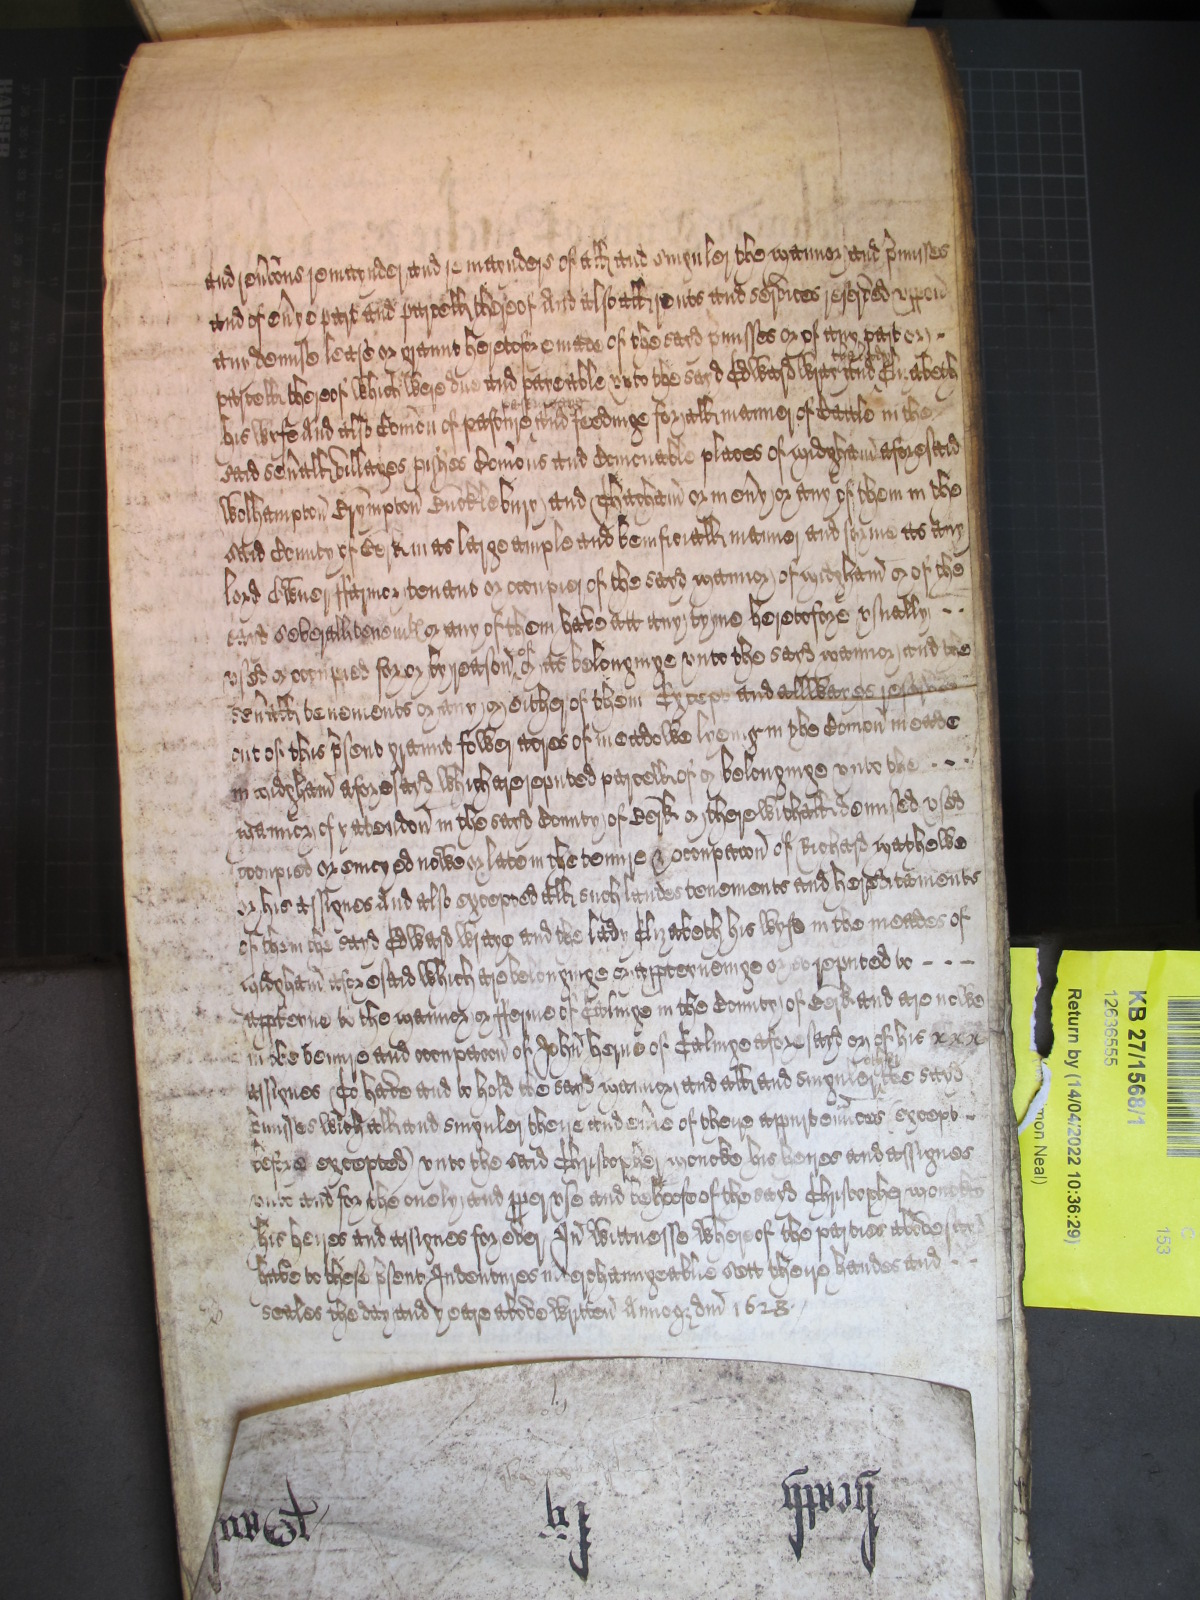 and rev͠cons remaynder and remaynders of all and singuler the mannor and p͠misses
and of ev͠ye part and parcell thereof And also all rents and services reserved uppon
anie demise lease or graunt heretofore made of the sayd p͠misses or of any part or -
parcell thereof which were due and payeable unto the sayd Edward Wray and Elizabeth
his wyfe And also Com͠on of pasture and feedinge for all manner of Cattle in the
said sev͠all villages p̱ishes Com͠ons and Comonable places of midgham aforesaid
Wolhampton Brympton Bucklebury and Thacham or in ev͠y or any of them in the
said County of Berk in as large ample and benificiall manner and forme as any
lord Owner ffarmor tenant or occupier of the sayd mannor of midgham or of the
sayd severall tenem͠ts or any of them have att any tyme heretofore usually - -
used or occupied for or by reason of or as belonginge unto the sayd mannor and the
sev͠all tenements or any or either of them Except and allwayes reserved
out of this p͠sent graunt fower acres of meadowe lyeing in the Com͠on meade
in midgham aforesayd which are reputed parcell of or belonginge unto the - - -
mannor of yatendon in the sayd County of Berk or therewithall demised used
occupied or enioyed nowe or late in the tenure & occupacon of Richard mathewe
or his assignes And also excepted all such landes tenements and hereditaments
of them the sayd Edward Wraye and the lady Elizabeth his wyfe in the meades of
midgham aforesaid which are belonginge or apperteninge or reputed to - - -
apperteine to the mannor or fferme of in the County of Berk and are nowe
in the tenure and occupacon of John herne of aforesayd or of his x x x
assignes To have and to hold the sayd mannor and all and singuler other the sayd
p͠misses with all and singuler theire and ev͠ie of theire appurten͠nces (except -
before excepted) unto the said Christopher moncke his heires and assignes
unto and for the onely and p̱per use and behoofe of the sayd Christopher moncke
his heires and assignes for ever In Wittnesse whereof the parties abovesaid
have to these p͠sent Indentures interchaungeablie sett theire handes and - -
seales the day and yeare above written Annoq; dm͠ 1623
heath
KB 27/1568/1
12636555
Return by (14/04/2022 10:36:29)
mon Neal)
153